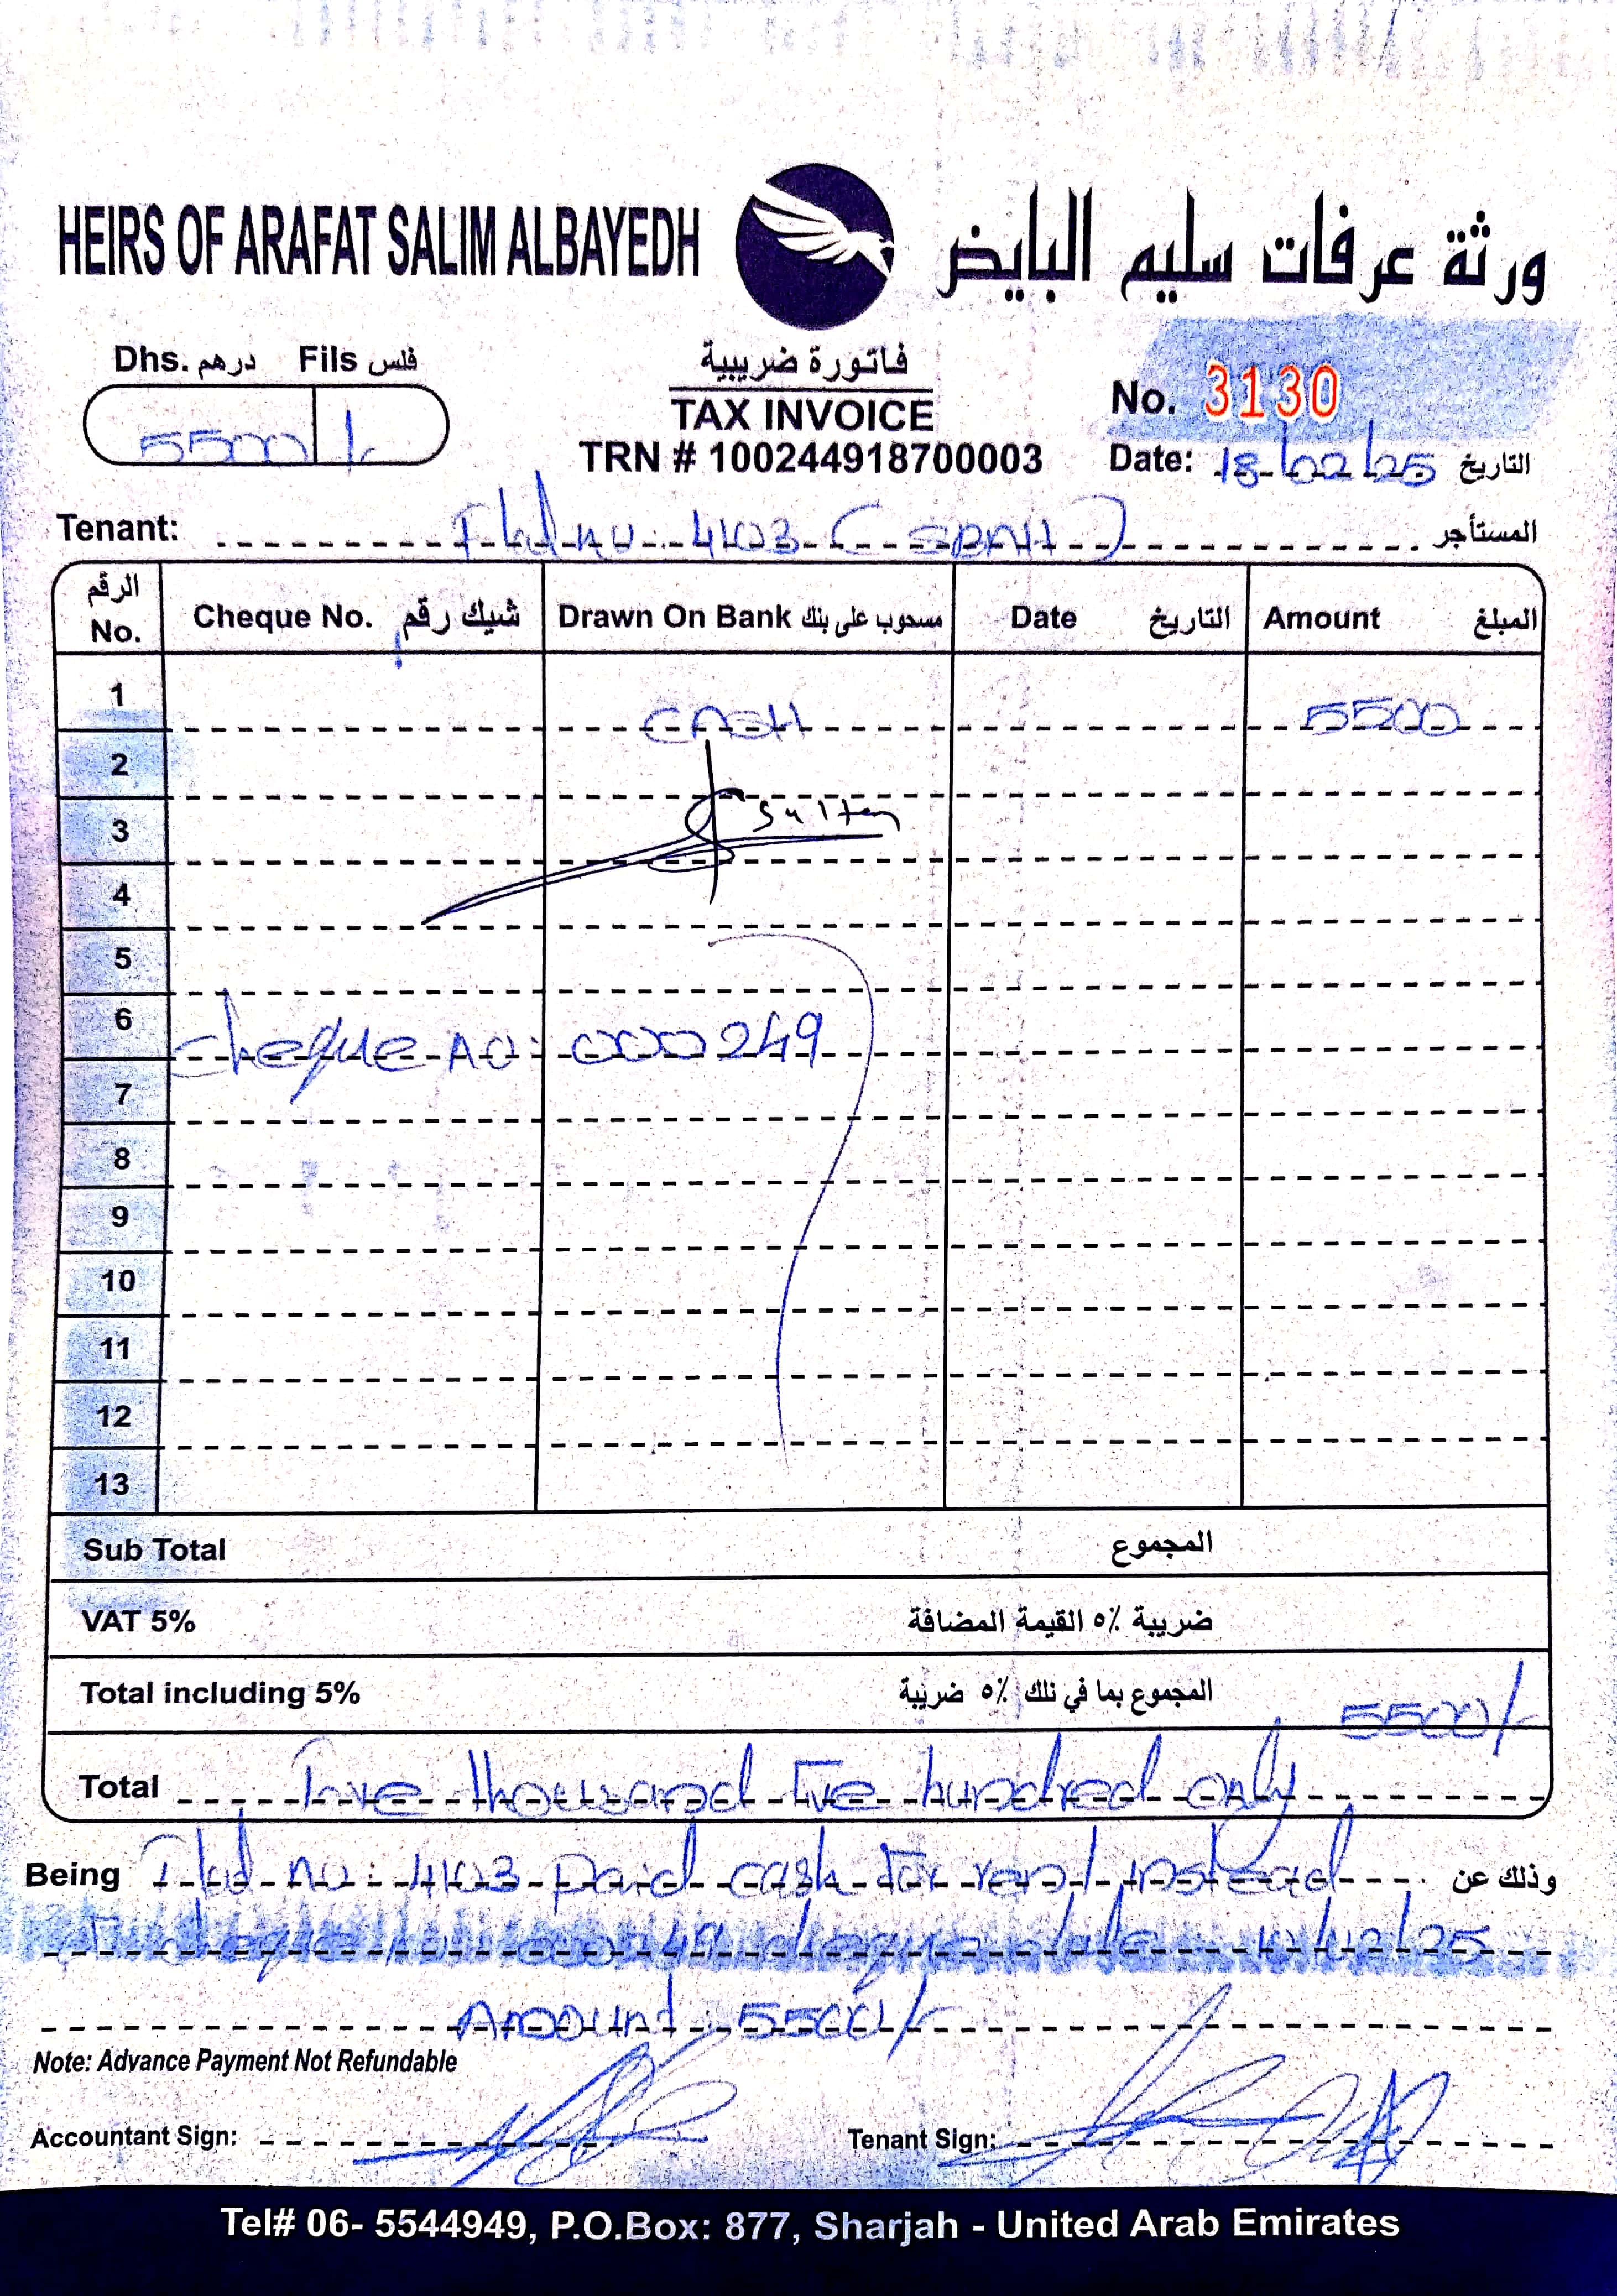 HEIRS OF ARAFAT SALIM ALBAYEDH ورثة عرفات سليم البايض
Dhs. درهم Fils فلس
5500/-
فاتورة ضريبية
TAX INVOICE
TRN # 100244918700003
No. 3130
Date: 18/02/25 التاريخ
Tenant: Flat no: 403 ( ) المستأجر
الرقم No. Cheque No. شيك رقم Drawn On Bank مسحوب على بنك Date التاريخ Amount المبلغ
1 CASH 5500
2
3 Sultan
4
5
6 Cheque no: 000249
7
8
9
10
11
12
13
Sub Total المجموع
VAT 5% ضريبة ٥٪ القيمة المضافة
Total including 5% المجموع بما في ذلك ٥٪ ضريبة 5500/-
Total Five thousand five hundred only
Being Flat no: 403 paid cash for rent instead وذلك عن
cheque no: 000249 cheque date /02/25
Amount: 5500/-
Note: Advance Payment Not Refundable
Accountant Sign: Tenant Sign:
Tel# 06- 5544949, P.O.Box: 877, Sharjah - United Arab Emirates